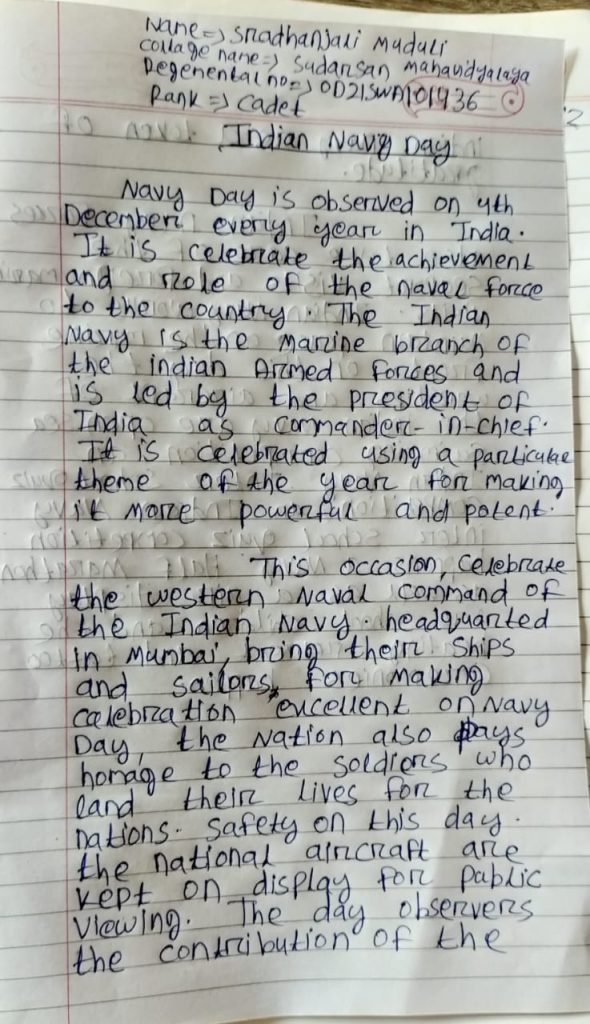 Name=> Sradhanjali Muduli
Collage name=> Sudarsan Mahavidyalaya
Regemental no=> OD21SWA101436
Rank => Cadet
Indian Navy Day
Navy Day is observed on 4th
December every year in India.
It is celebrate the achievement
and role of the naval force
to the country. The Indian
Navy is the marine branch of
the indian Armed forces and
is led by the president of
India as commander-in-chief.
It is celebrated using a particular
theme of the year for making
it more powerful and potent.
This occasion, celebrate
the western Naval command of
the Indian Navy. headquarted
in Mumbai, bring their ships
and sailors, for making
calebration excellent on Navy
Day, the Nation also pays
homage to the soldiers who
land their lives for the
nations. safety on this day.
the national aircraft are
kept on display for public
viewing. The day observers
the contribution of the